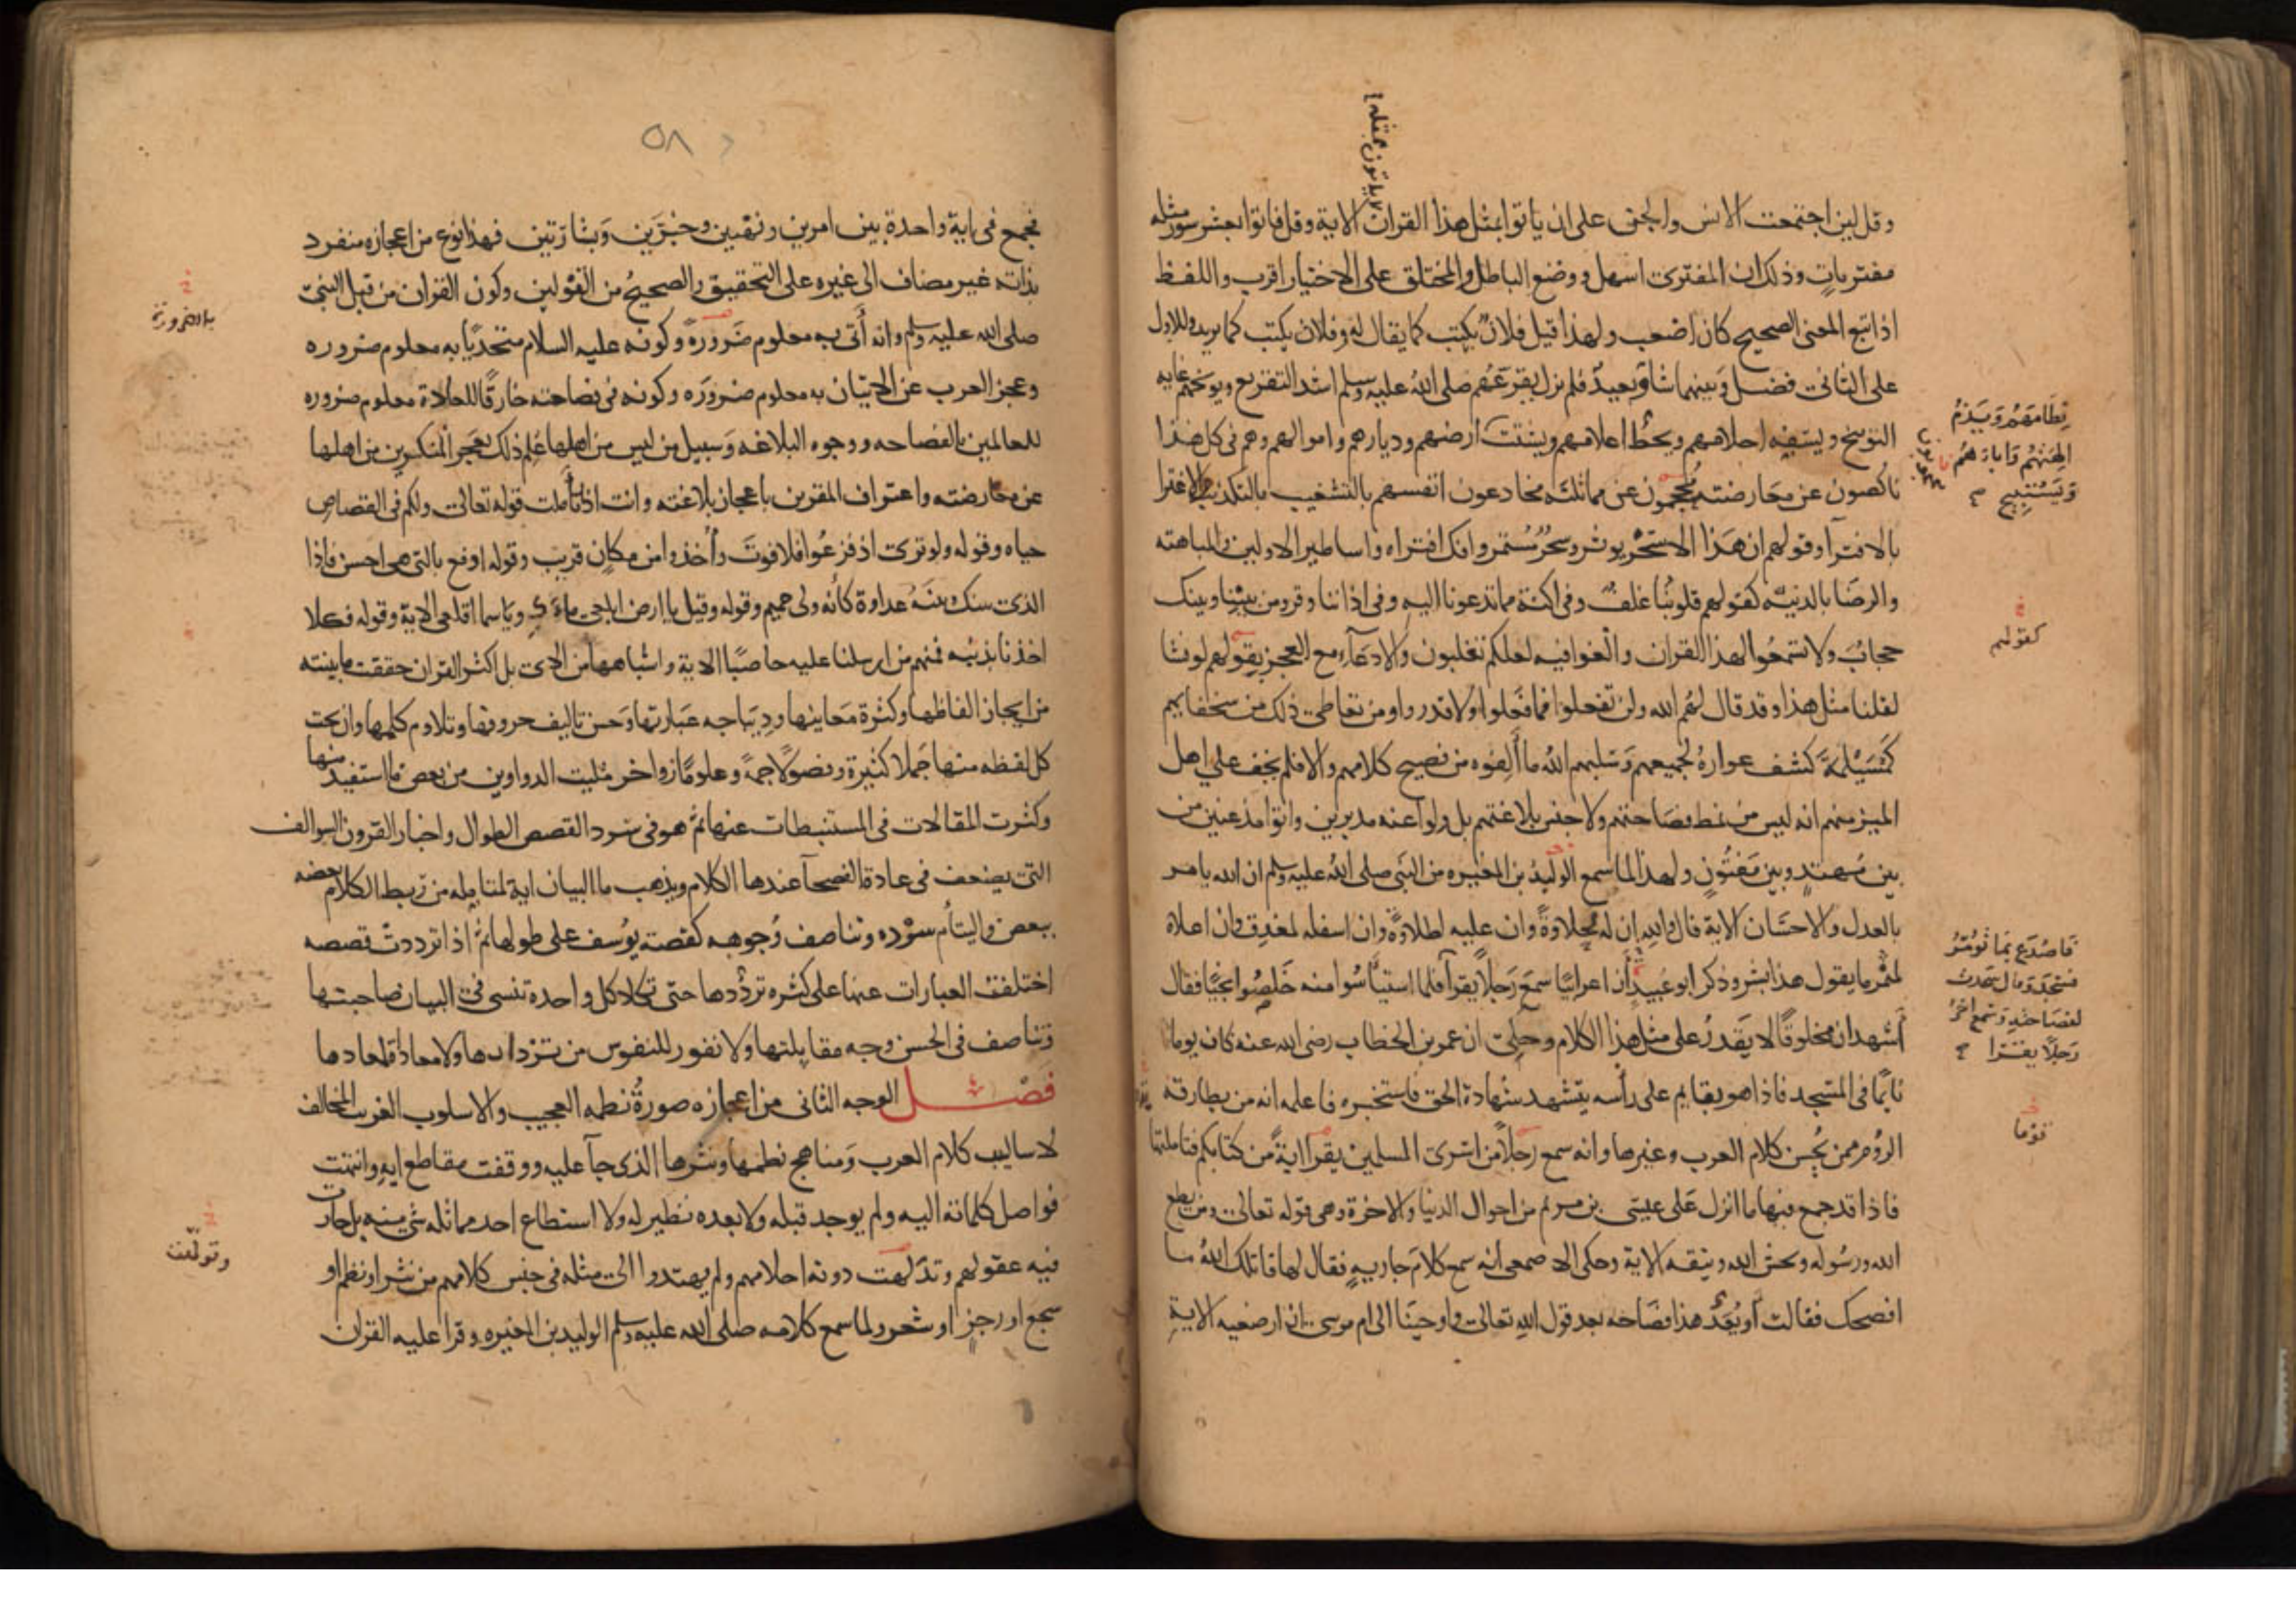 لا ياتون بمثله
وقل لين اجتمعت الانس والجن على ان ياتوا بمثل هذا القران الاية وقل فاتوا بعشر سور مثله
مفتريات وذلك ان المفترى اسهل ووضع الباطل والمختلق على الاختيار اقرب واللفظ
اذا تبع المعنى الصحيح كان اصعب ولهذا قيل فلان يكتب كما يقال له وفلان يكتب كما يريد وللاول
على الثانى فضل وبينهما شاو بعيد فلم يزل يقرعهم صلى الله عليه وسلم اشد التقريع ويوبخهم غايه
التوبيخ ويسفه احلامهم ويحط اعلامهم ويشتت
نظامهم ويذم
الهتهم واباءهم
ويستبيح
ارضهم وديارهم واموالهم وهم فى كل هذا
ناكصون عن معارضته محجمون عن مماثلته مخادعون انفسهم بالتشغيب بالتكذيب والاغترا
بالافترا وقولهم ان هذا الا سحر يوثر وسحر مستمر وافك افتراه واساطير الاولين والمباهته
والرضا بالدنيه كقولهم قلوبنا غلف وفى اكنة مما تدعونا اليه وفى اذاننا وقر ومن بيننا وبينك
كقولهم
حجاب ولا تسمعوا لهذا القران والغوا فيه لعلكم تغلبون والادعاء مع العجز بقولهم لو نشا
لقلنا مثل هذا وقد قال لهم الله ولن تفعلوا فما فعلوا ولا قدروا ومن تعاطى ذلك من سخفايهم
كمسيلمة كشف عواره لجميعهم وسلبهم الله ما الفوه من فصيح كلامهم والا فلم يخف على اهل
الميز منهم انه ليس من نمط فصاحتهم ولا جنس بلاغتهم بل ولوا عنه مدبرين واتوا مذعنين من
بين مهتد وبين مفتون ولهذا لما سمع الوليد بن المغيره من النبى صلى الله عليه وسلم ان الله يامر
بالعدل والاحسان الاية قال والله ان له لحلاوة وان عليه لطلاوة وان اسفله لمغدق وان اعلاه
لمثمر ما يقول هذا بشر وذكر ابو عبيد ان اعرابيا سمع رجلا يقرا
فاصدع بما تومر
فسجد وقال سجدت
لفصاحته وسمع اخر
رجلا يقرا
فلما استياسوا منه خلصوا نجيا فقال
اشهد ان مخلوقا لا يقدر على مثل هذا الكلام وحكى ان عمر بن الخطاب رضى الله عنه كان يوما
نايما فى المسجد فاذا هو بقايم على راسه يتشهد شهادة الحق فاستخبره فاعلمه انه من بطارقة
الروم ممن يحسن كلام العرب وغيرها وانه سمع رجلا من اسرى المسلمين يقرا اية من كتابكم فتاملتها
فاذا قد جمع فيها ما انزل على عيسى بن مريم من احوال الدنيا والاخرة وهى قوله تعالى ومن يطع
الله ورسوله ويخش الله ويتقه الاية وحكى الاصمعى انه سمع كلام جارية فقال لها قاتلك الله ما
افصحك فقالت اويعد هذا فصاحه بعد قول الله تعالى واوحينا الى ام موسى ان ارضعيه الاية
٥٨
فجمع فى اية واحدة بين امرين ونهيين وخبرين وبشارتين فهذا نوع من اعجازه منفرد
بذاته غير مضاف الى غيره على التحقيق والصحيح من القولين وكون القران من قبل النبى
صلى الله عليه وسلم وانه اتى به معلوم ضرورة وكونه عليه السلام متحديا به معلوم ضروره
بالضرورة
وعجز العرب عن الاتيان به معلوم ضروره وكونه فى فصاحته خارقا للعادة معلوم ضروره
للعالمين بالفصاحه ووجوه البلاغه وسبيل من ليس من اهلها علم ذلك بعجز المنكرين من اهلها
عن معارضته واعتراف المقرين باعجاز بلاغته وانت اذا تاملت قوله تعالى ولكم فى القصاص
حياه وقوله ولو ترى اذ فزعوا فلا فوت واخذوا من مكان قريب وقوله ادفع بالتى هى احسن فاذا
الذى بينك وبينه عداوة كانه ولى حميم وقوله وقيل يا ارض ابلعى ماءك ويا سما اقلعى الاية وقوله فكلا
اخذنا بذنبه فمنهم من ارسلنا عليه حاصبا الاية واشباهها من الاى بل اكثر القران حققت ما بينته
من ايجاز الفاظها وكثرة معانيها وديباجه عبارتها وحسن تاليف حروفها وتلاوم كلمها وان تحت
كل لفظه منها جملا كثيرة وفصولا جمة وعلوما زواخر مليت الدواوين من بعض ما استفيد منها
وكثرت المقالات فى المستنبطات عنها ثم هو فى سرد القصص الطوال واخبار القرون السوالف
التى يضعف فى عادة الفصحا عندها الكلام ويذهب ما البيان اية لمتامله من ربط الكلام بعضه
ببعض والتيام سرده وتناصف وجوهه كقصة يوسف على طولها ثم اذا ترددت قصصه
اختلفت العبارات عنها على كثره ترددها حتى تكاد كل واحده تنسى فى البيان صاحبتها
وتناصف فى الحسن وجه مقابلتها ولا نفور للنفوس من تردادها ولا معاداة لمعادها
فصل الوجه الثانى من اعجازه صورة نظمه العجيب والاسلوب الغريب المخالف
لاساليب كلام العرب ومناهج نظمها ونثرها الذى جا عليه ووقفت مقاطع ايه وانتهت
فواصل كلماته اليه ولم يوجد قبله ولا بعده نظير له ولا استطاع احد مماثله شى منه بل حارت
فيه عقولهم وتدلهت دونه احلامهم ولم يهتدوا الى مثله فى جنس كلامهم من نثر او نظم او
وتولهت
سجع او رجز او شعر ولما سمع كلامه صلى الله عليه وسلم الوليد بن المغيره وقرا عليه القران